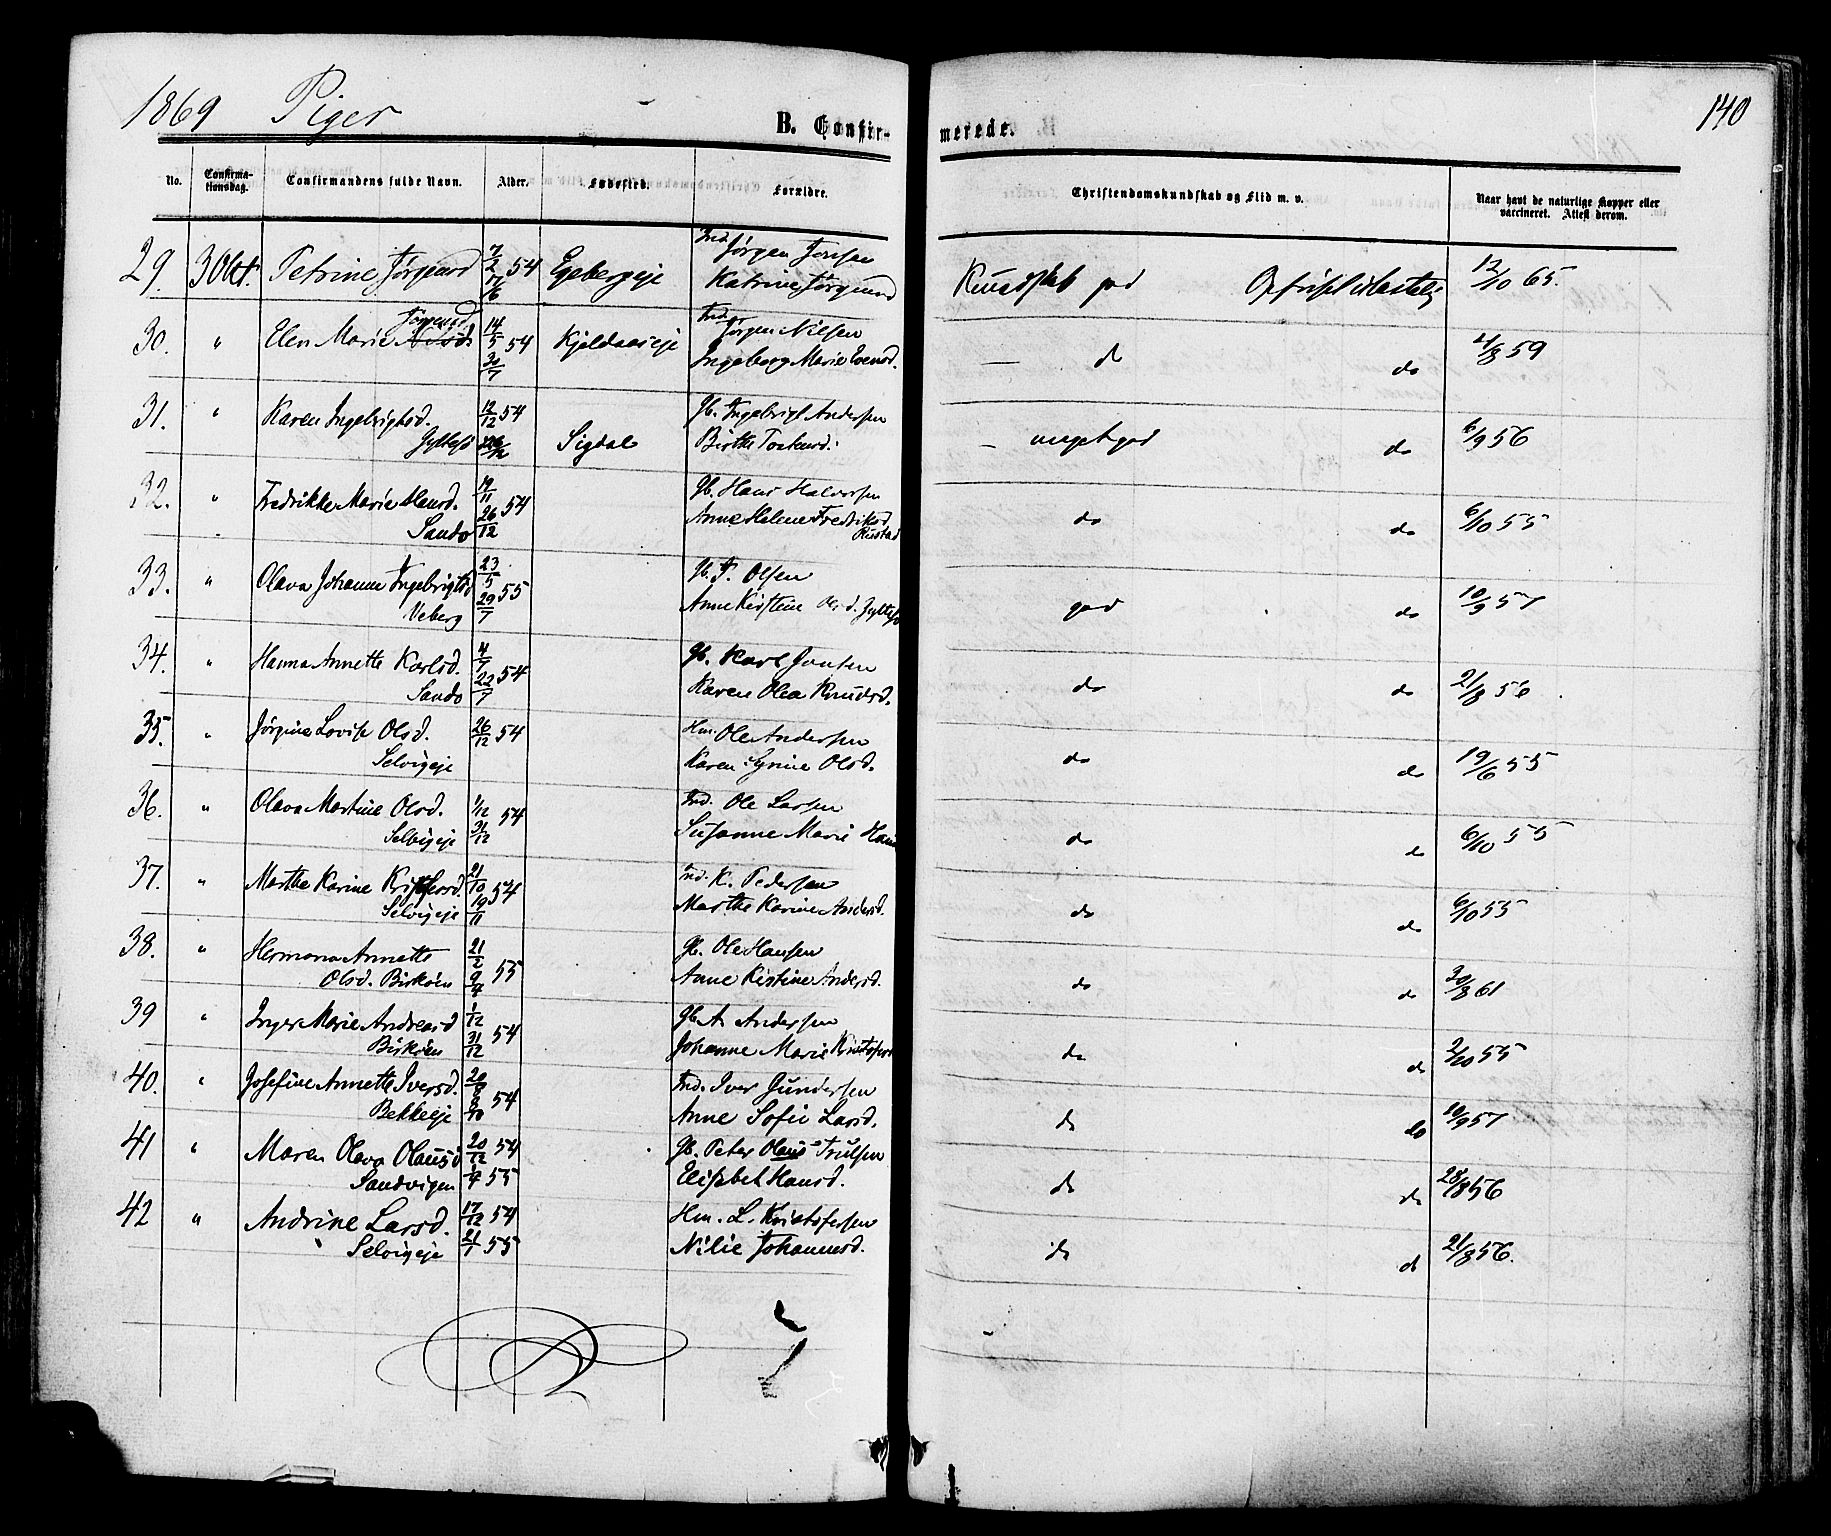 1869 Piger
140
B. Confir-
merede.
No.
Confirma-
tionsdag.
Confirmandens fulde Navn.
Alder.
Fødested.
Forældre.
Christendomskundskab og Flid m. v.
Naar havt de naturlige Kopper eller
vaccineret. Attest derom.
29. 3 Okt. Petrine Jørgensd 7/2 54 Egebergeje Ind. Jørgen Jonsen Kundskab god 12/10 65.
Katrine Jørgensd
30. " Elen Marie Jørgensd. 14/5 54 Kjeldaaseje Ind. Jørgen Nilsen — do do 4/8 59
30/7 Ingeborg Marie Evensd.
31. " Karen Ingebrigtsd. 12/12 54 Gb. Ingebrigt Andersen
Gyltesø Sigdal Birthe — meget god do 6/9 56
32. " Fredrikke Marie Hansd. 19/11 54 Gb. Hans Halvorsen
Sando 26/12 Anne Helene Fredriksd. Rustad do do 6/10 55
33. " Olava Johanne Ingebrigtsd 23/5 55 Gb. I. Olsen
Veberg 29/7 Anne Kirstine Olsd. Gyltesø god do 10/9 57
34. " Hanna Annette Karlsd. 4/7 54 Gb. Karl Jonsen
Sando 22/7 Karen Olea Knudsd. do do 21/8 56
35. " Jørgine Lovise Olsd. 26/12 54 Hm. Ole Andersen
Selvigeje Karen Gynine Olsd. do do 19/6 55
36. " Olava Martine Olsd. 1/12 54 Ind. Ole Larsen
Selvigeje 31/12 Susanne Marie Hans do do 6/10 55
37. " Marthe Karine Kristofersd. 21/10 54 Ind. K. Pedersen
Selvigeje 19/11 Marthe Karine Andersd. do do 6/10 55
38. " Hermana Annette 21/2 55 Gb. Ole Hansen
Olsd. Birkøen 9/4 Anne Kirstine Andersd. do do 30/8 61
39 " Inger Marie Andreasd 1/12 54 Gb. A. Andersen
Birkøen 31/12 Johanne Marie Kristofers do do 2/10 55
40. " Josefine Annette Iversd. 20/8 54 Ind. Iver Gundersen
Bekkeeje 8/10 Anne Sofie Larsd. do do 10/9 57
41 " Maren Olava Olausd 20/12 54 Gb. Peter Olaus Trulsen
Sandvigen 1/4 55 Elisabet Hansd. do do 28/8 56
42 " Andrine Larsd. 17/12 54 Hm. L. Kristofersen
Selvigeje 21/1 55 Nilie Johannesd. do do 21/8 56.